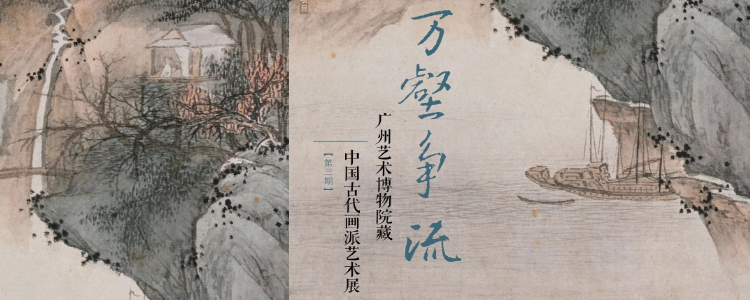 万壑争流
广州艺术博物院藏
中国古代画派艺术展
【第三期】